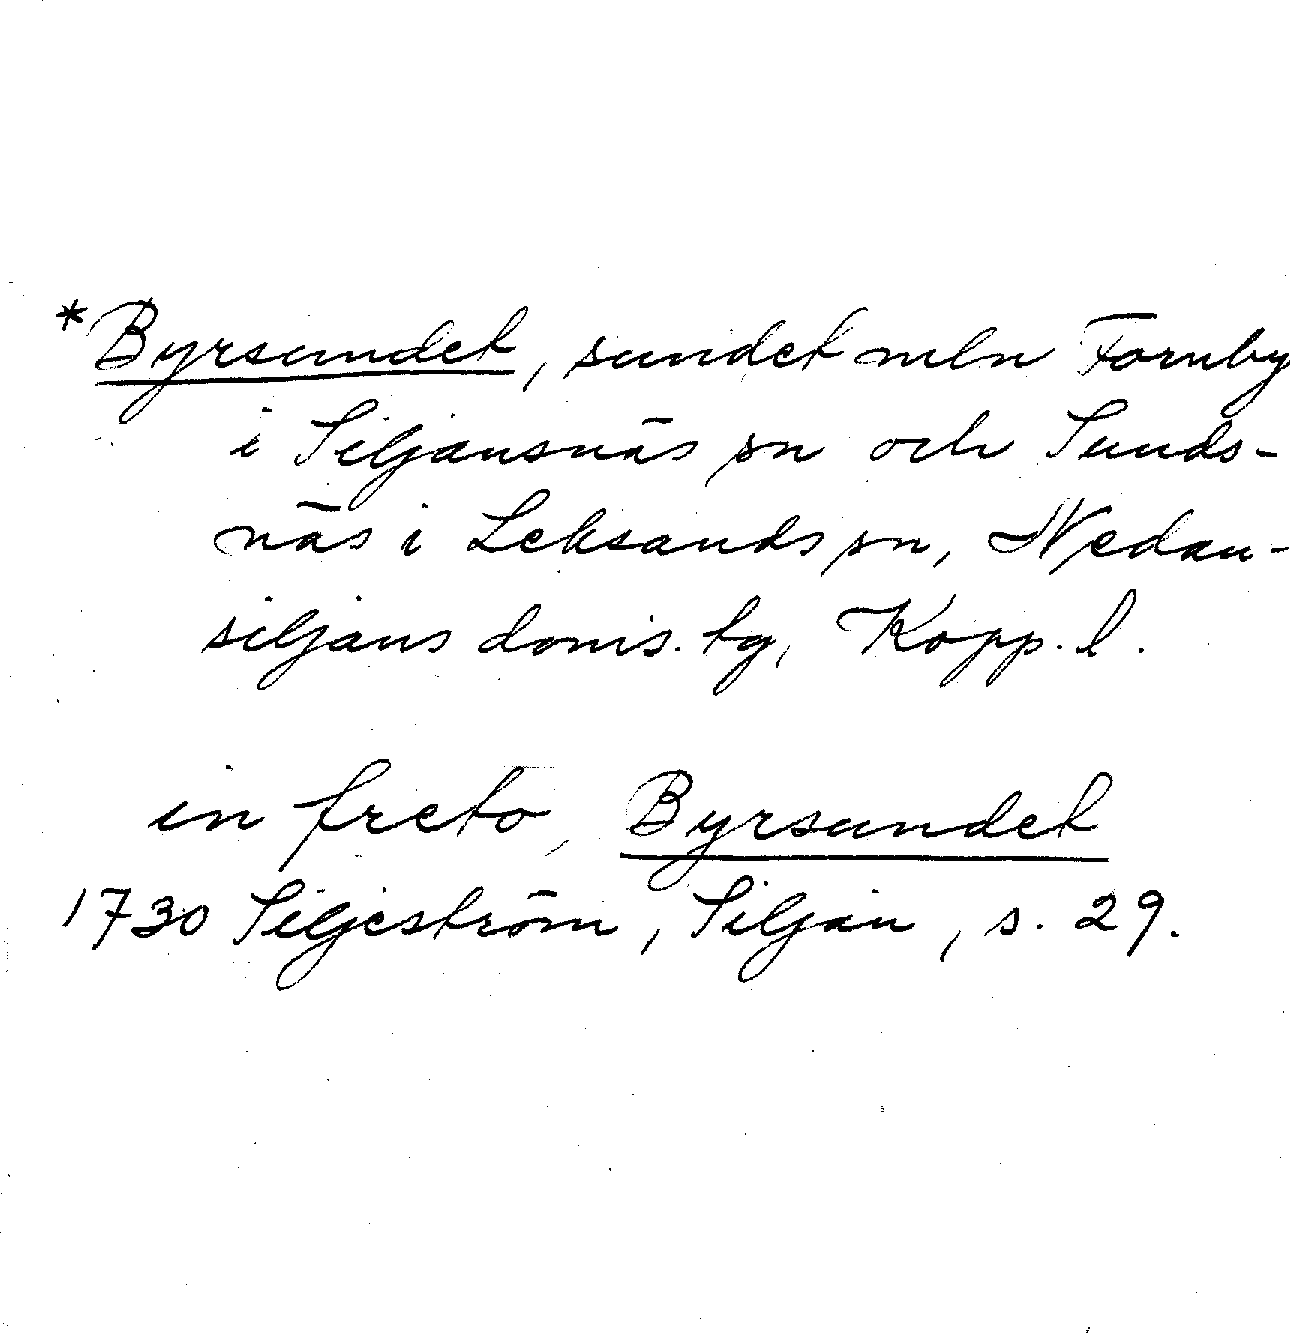 *Byrsundet, sundet mln Fornby
i Siljansnäs sn och Sunds-
näs i Leksands sn, Nedan-
siljans doms. tg, Kopp. l.
in freto, Byrsundet
1730 Siljeström, Siljan, s. 29.